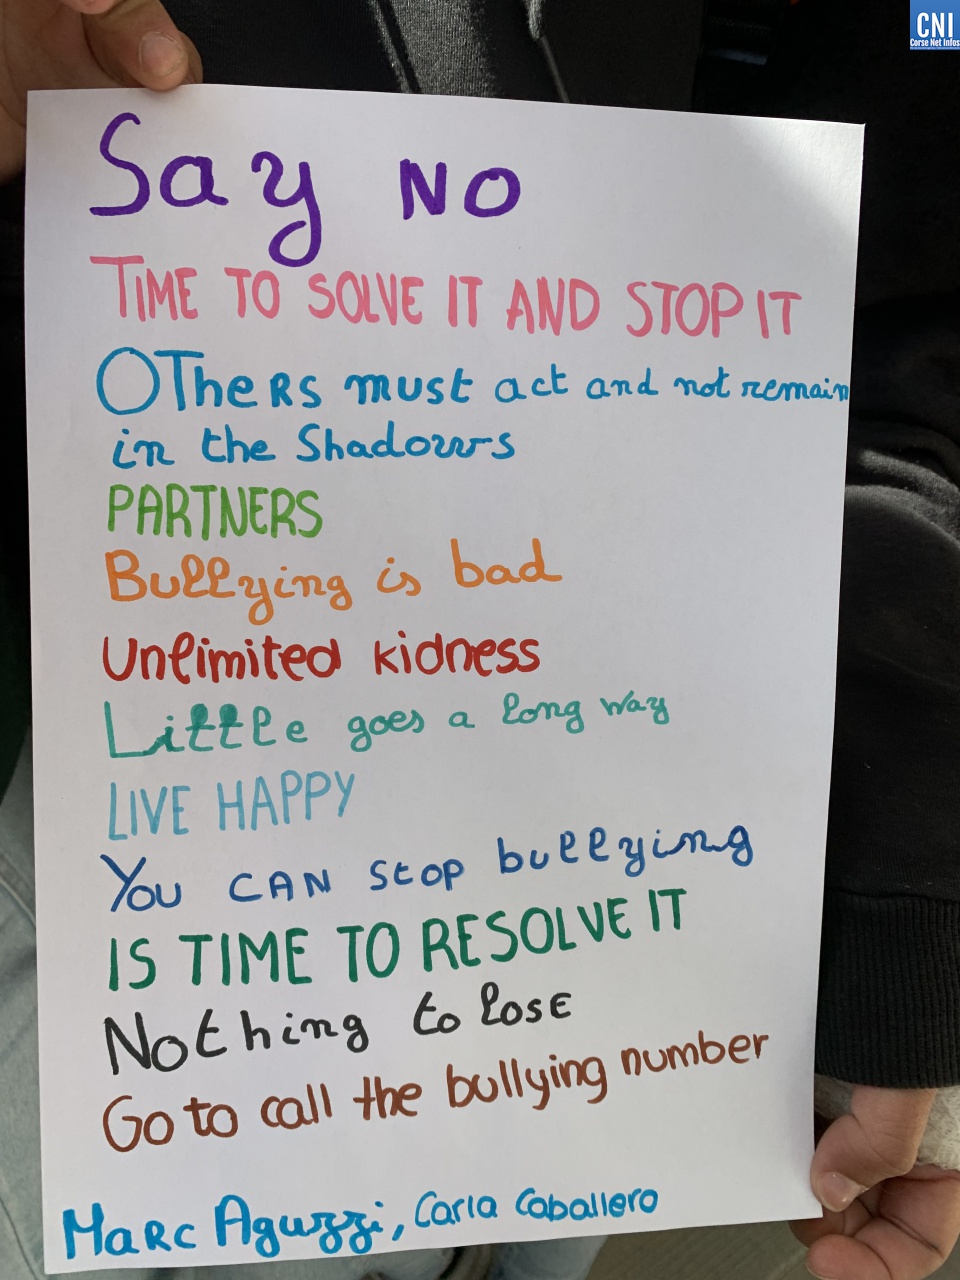 CNI
Corse Net Infos
Say NO
TIME TO SOLVE IT AND STOP IT
OTHeRS must act and not remain
in the Shadows
PARTNERS
Bullying is bad
Unlimited kidness
Little goes a long way
LIVE HAPPY
You CAN stop bullying
IS TIME TO RESOLVE IT
Nothing to lose
Go to call the bullying number
Marc Aguzzi, Carla Caballero